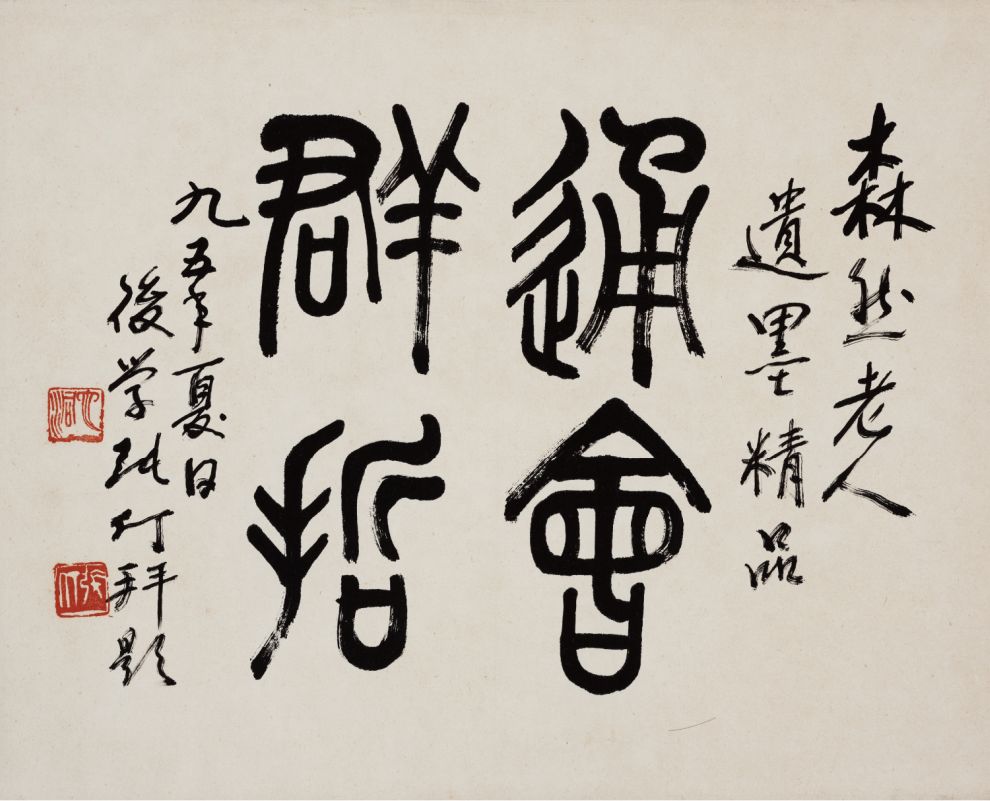 森然老人
遺墨精品
通會
群哲
九五年夏日
後学张仃拜題
張仃